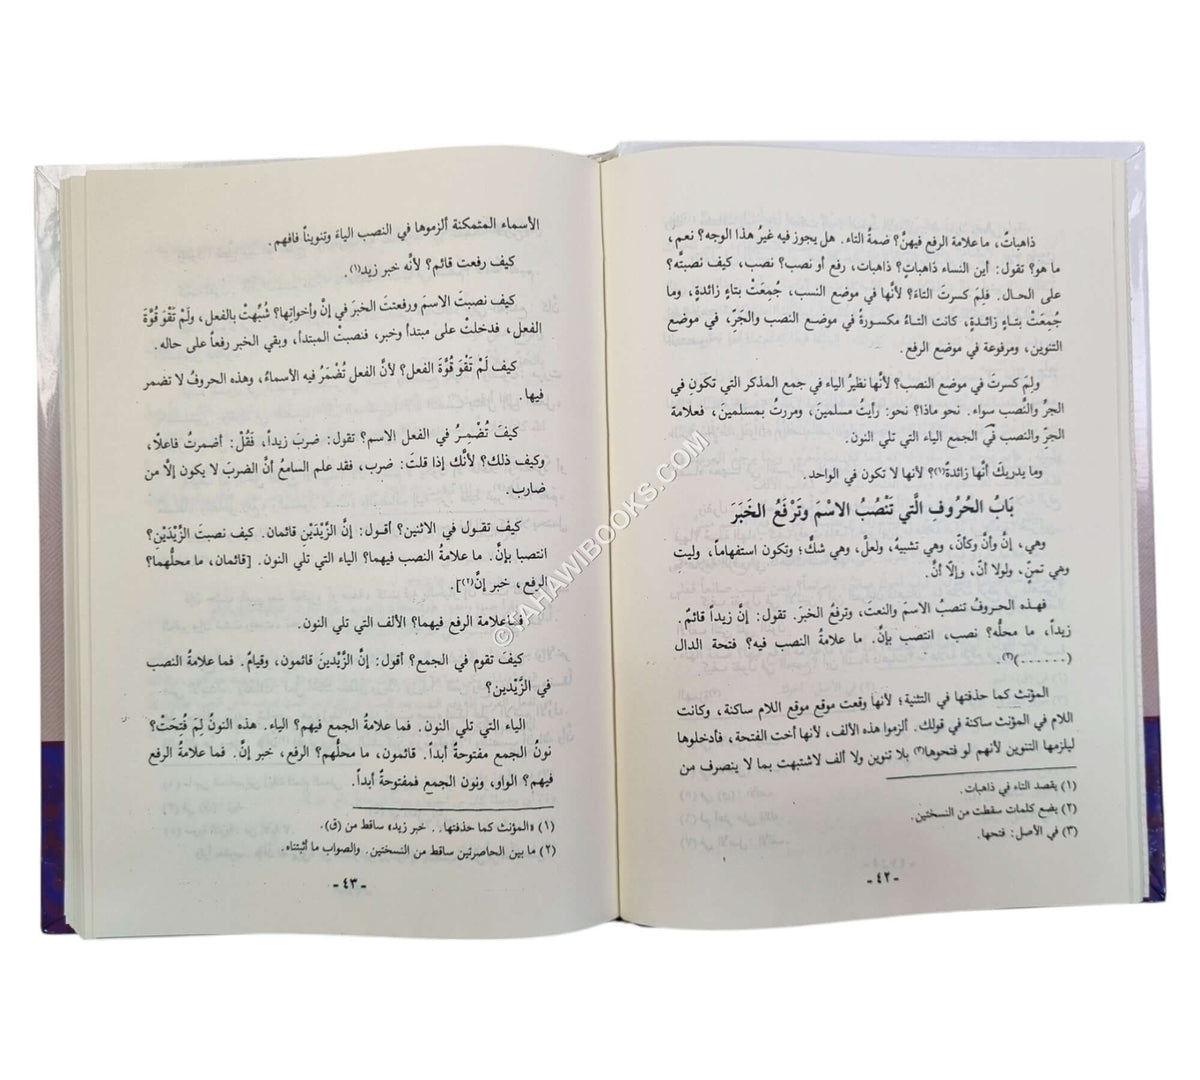 ذاهباتٌ، ما علامة الرفع فيهنَّ؟ ضمةُ التاء. هل يجوز فيه غيرُ هذا الوجه؟ نعم،
ما هو؟ تقول: أين النساء ذاهباتٍ؟ ذاهبات، رفع أو نصب؟ نصب، كيف نصبتَه؟
على الحال. فلِمَ كسرتَ التاءَ؟ لأنها في موضع النسب، جُمِعَتْ بتاءٍ زائدةٍ، وما
جُمِعَتْ بتاءٍ زائدةٍ، كانت التاءُ مكسورةً في موضع النصب والجَرِّ، في موضع
التنوين، ومرفوعة في موضع الرفع.
ولِمَ كسرتَ في موضع النصب؟ لأنها نظيرُ الياء في جمع المذكر التي تكون في
الجرُّ والنَّصب سواء. نحو ماذا؟ نحو: رأيتُ مسلمينَ، ومررتُ بمسلمينَ، فعلامة
الجرِّ والنصب في الجمع الياء التي تلي النون.
وما يدريكَ أنَّها زائدةٌ(١)؟ لأنها لا تكون في الواحد.
بَابُ الحُرُوف الَّتي تَنْصُبُ الاسْمَ وتَرْفَعُ الخَبَرَ
وهي، إنَّ وأنَّ وكأنّ، وهي تشبيهٌ، ولعلَّ، وهي شكٌّ؛ وتكون استفهاماً، وليتَ
وهي تمنٍّ، ولولا أنّ، وإلّا أنَّ.
فهذه الحروفُ تنصبُ الاسمَ والنعتَ، وترفعُ الخبرَ. تقول: إنَّ زيداً قائمٌ.
زيداً، ما محلُّه؟ نصب، انتصب بإنَّ. ما علامةُ النصب فيه؟ فتحة الدال
(......)(٢).
المؤنث كما حذفتها في التثنية؛ لأنها وقعت موقع موقع اللام ساكنة، وكانت
اللام في المؤنث ساكنة في قولك. ألزموا هذه الألف، لأنها أخت الفتحة، فأدخلوها
ليلزمها التنوين لأنهم لو فتحوها(٣) بلا تنوين ولا ألف لاشتبهت بما لا ينصرف من
(١) يقصد التاء في ذاهبات.
(٢) بضع كلمات سقطت من النسختين.
(٣) في الأصل: فتحها.
- ٤٢ -
الأسماء المتمكنة ألزموها في النصب الياءَ وتنويناً فافهم.
كيف رفعت قائم؟ لأنَّه خبر زيد(١).
كيف نصبتَ الاسمَ ورفعتتَ الخبرَ في إنَّ وأخواتِها؟ شُبِّهتْ بالفعل، ولَمْ تَقْوَ قُوَّةَ
الفعل، فدخلتْ على مبتدأ وخبر، فنصبتْ المبتدأ، وبقي الخبر رفعاً على حاله.
كيف لَمْ تَقْوَ قُوَّةَ الفعل؟ لأنَّ الفعل تُضْمَرُ فيه الأسماءُ، وهذه الحروفُ لا تضمر
فيها.
كيفَ تُضْمِرُ في الفعل الاسم؟ تقول: ضربَ زيداً، فَقُلْ: أضمرتُ فاعلًا،
وكيف ذلك؟ لأنَّك إذا قلتَ: ضرب، فقد علم السامعُ أنَّ الضربَ لا يكون إلَّا من
ضارب.
كيف تقول في الاثنين؟ أقول: إنَّ الزَّيْدَيْنِ قائمان. كيف نصبتَ الزَّيْدَيْنِ؟
انتصبا بإنَّ. ما علامةُ النصب فيهما؟ الياء التي تلي النون. [قائمان، ما محلُّهما؟
الرفع، خبر إنَّ(٢)].
فما علامة الرفع فيهما؟ الألف التي تلي النون.
كيف تقوم في الجمع؟ أقول: إنَّ الزَّيْدينَ قائمون، وقيامٌ. فما علامةُ النصب
في الزَّيْدين؟
الياء التي تلي النون. فما علامةُ الجمع فيهم؟ الياء. هذه النونُ لِمَ فُتحَتْ؟
نونُ الجمع مفتوحةٌ أبداً. قائمون، ما محلُّهم؟ الرفع، خبر إنَّ. فما علامةُ الرفع
فيهم؟ الواو، ونون الجمع فمفتوحةٌ أبداً.
(١) «المؤنث كما حذفتها... خبر زيد» ساقط من (ق).
(٢) ما بين الحاصرتين ساقط من النسختين. والصواب ما أثبتناه.
- ٤٣ -
© TAHAWIBOOKS.COM